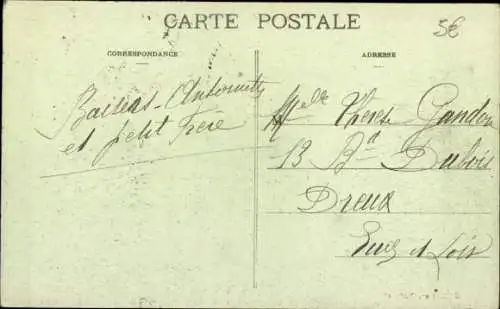 CARTE POSTALE
5€
CORRESPONDANCE
ADRESSE
Baisers Antoinette
et petit Frère
Melle Therese Gandon
13 Bd Dubois
Dreux
Eure et Loir